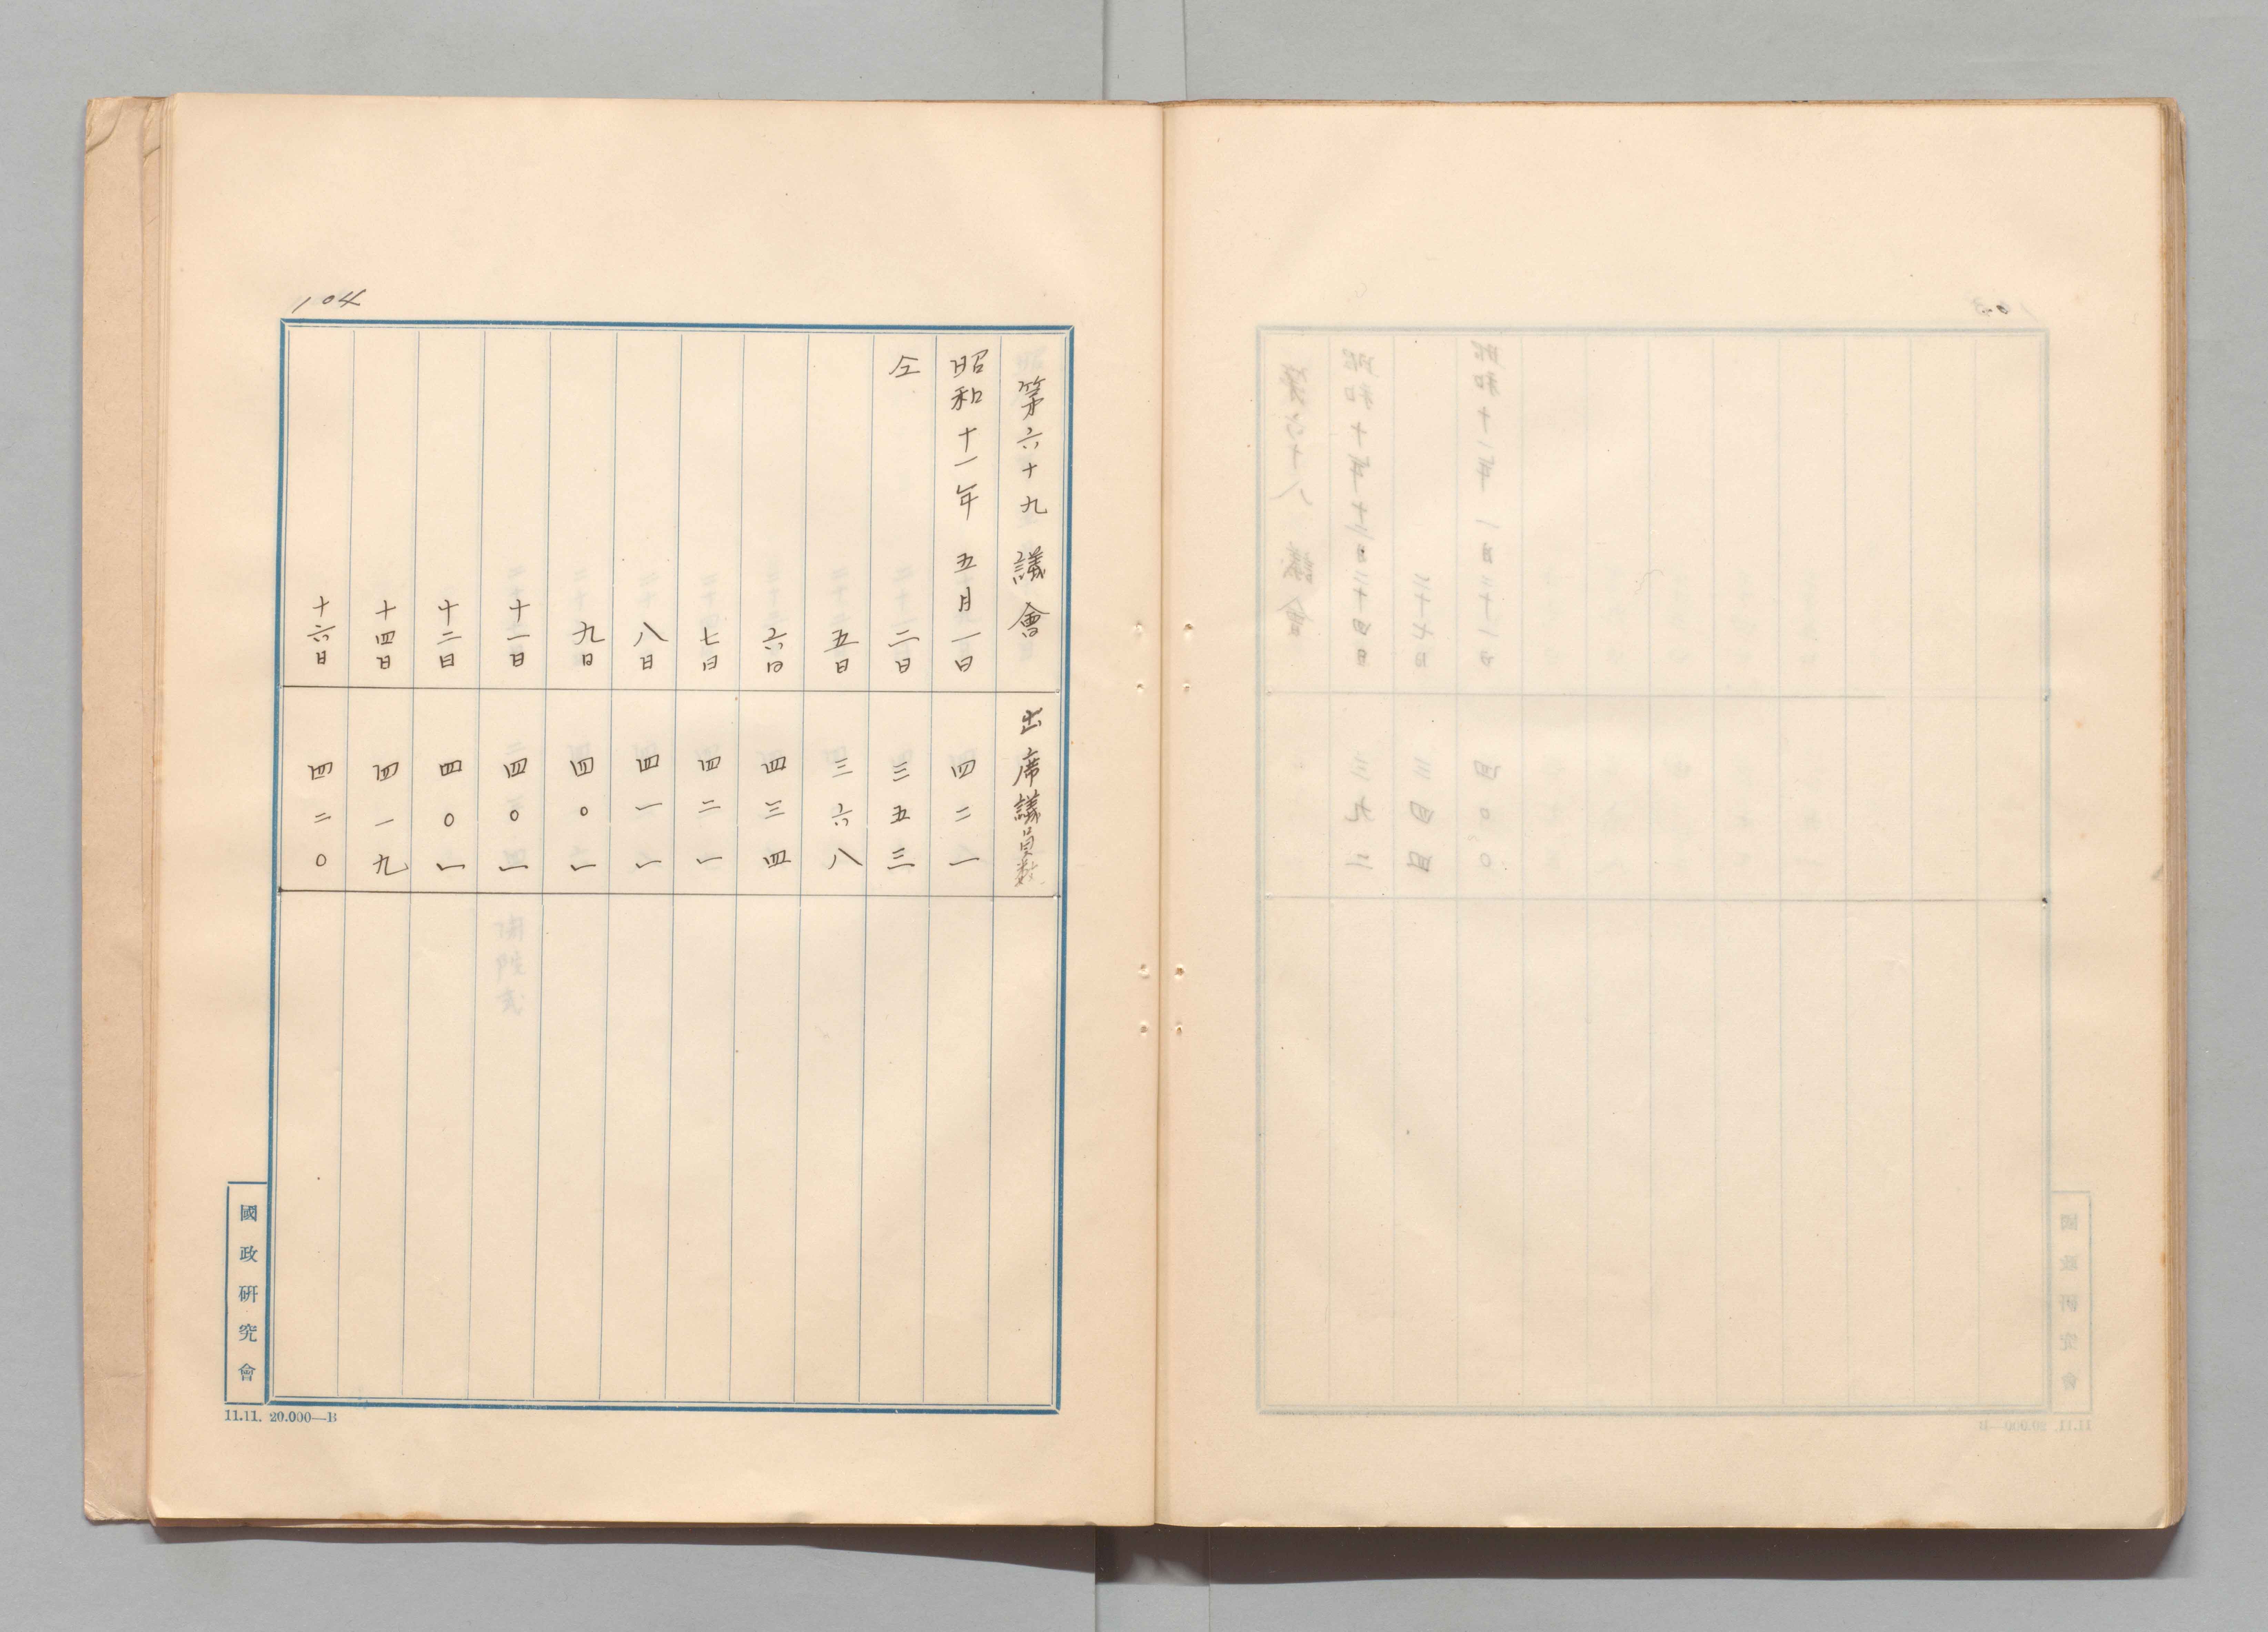 104
第六十九議會 出席議員数
昭和十一年 五月一日 四二一
仝 二日 三五三
五日 三六八
六日 四三四
七日 四二一
八日 四一一
九日 四〇一
十一日 四〇一
十二日 四〇一
十四日 四一九
十六日 四二〇
國政研究會
11.11. 20.000—B